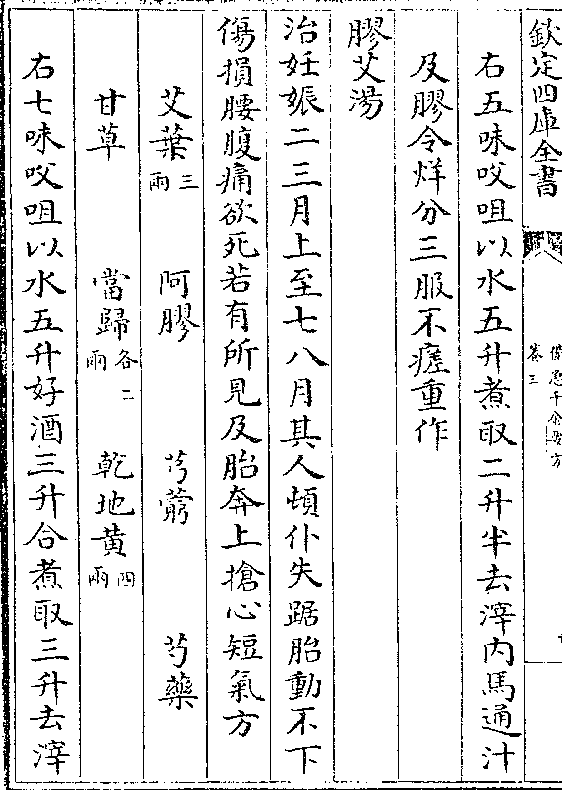 欽定四庫全書
備急千金要方
卷三
右五味㕮咀以水五升煮取二升半去滓內馬通汁
及膠令烊分三服不瘥重作
膠艾湯
治妊娠二三月上至七八月其人頓仆失踞胎動不下
傷損腰腹痛欲死若有所見及胎奔上搶心短氣方
艾葉三兩 阿膠 芎藭 芍藥
甘草 當歸各二兩 乾地黃四兩
右七味㕮咀以水五升好酒三升合煮取三升去滓